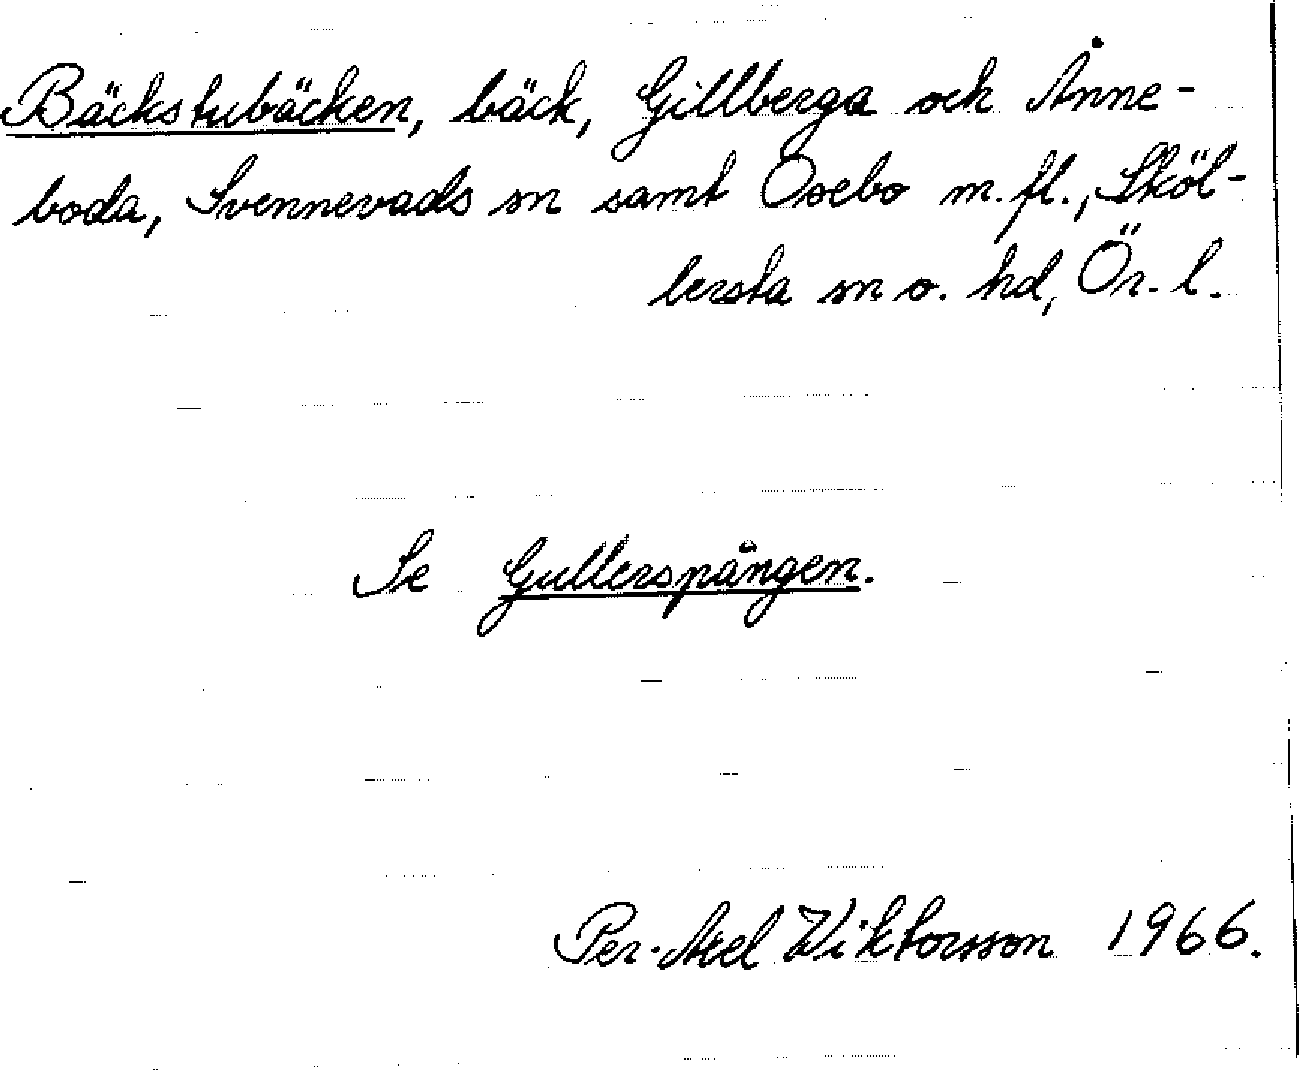 Bäckstubäcken, bäck, Gillberga och Ånne-
boda, Svennevads sn samt Åsebo m.fl., Sköl-
lersta sn o. hd, Ör. l.
Se Gullerspången.
Per-Axel Wiktorsson 1966.